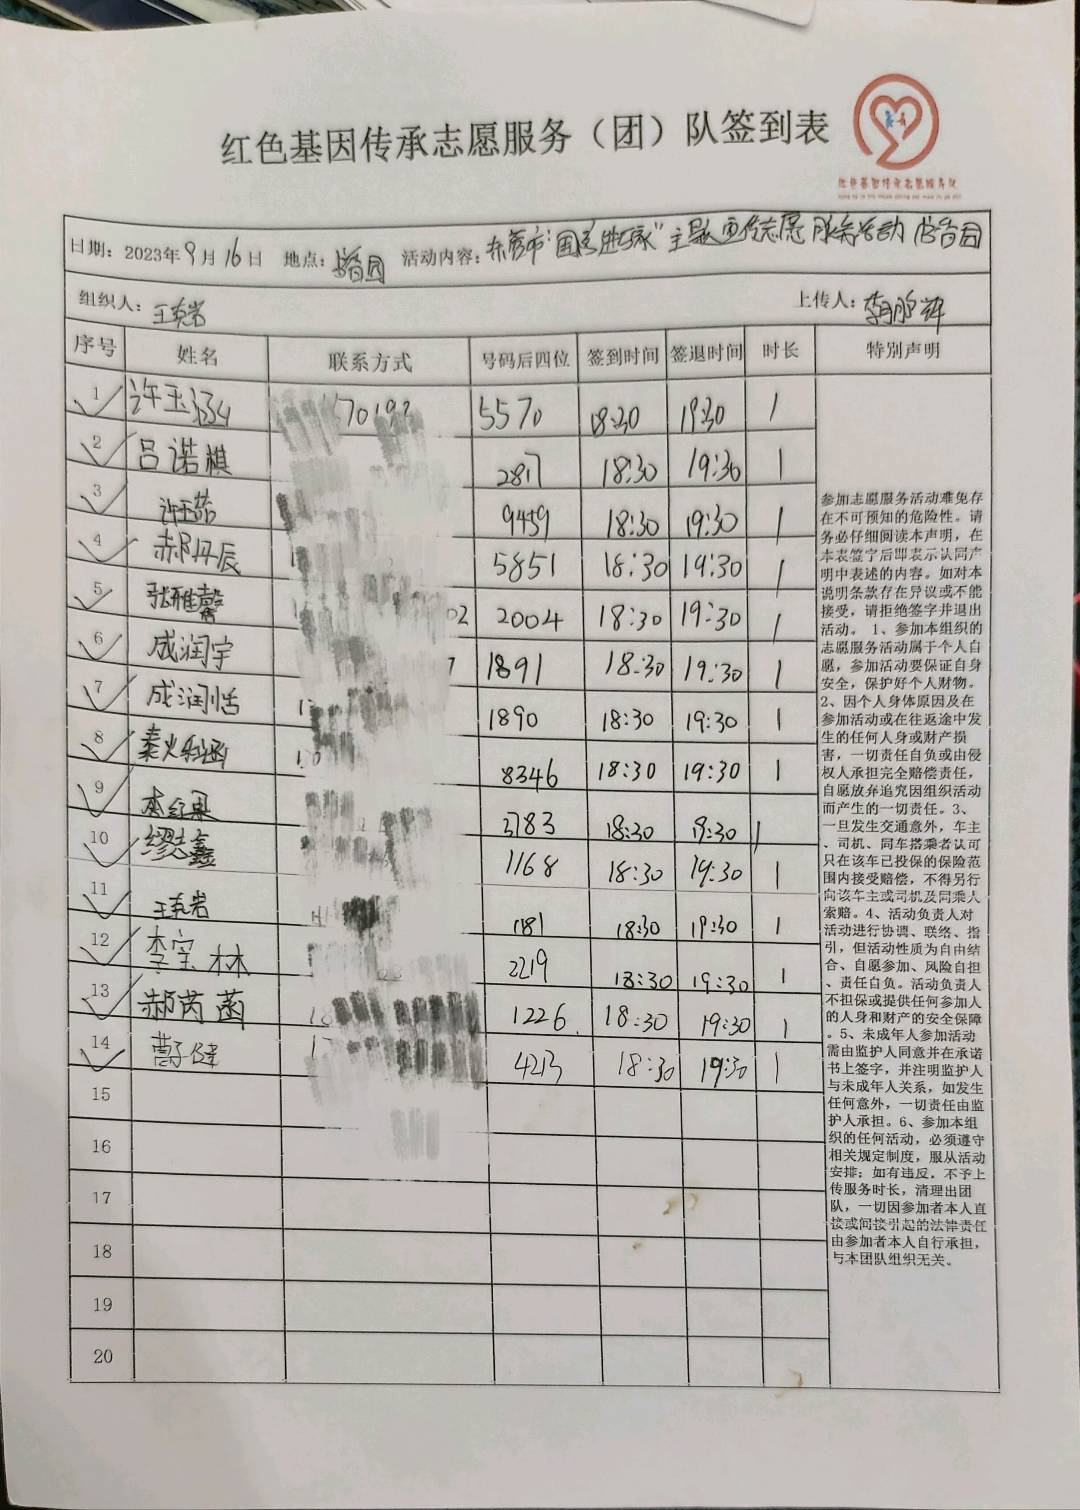 红色基因传承志愿服务（团）队签到表
红色基因传承志愿服务队
日期：2023年9月16日 地点：书香园 活动内容：东营市"国家安全" 主题宣传志愿服务活动 书香园
组织人：王克岩 上传人：
序号 姓名 联系方式 号码后四位 签到时间 签退时间 时长 特别声明
1 许玉涵 5570 18:30 19:30 1
2 吕诺祺 2817 18:30 19:30 1
3 许玉茹 9459 18:30 19:30 1
4 郝丹辰 5851 18:30 19:30 1
5 张雅馨 02 2004 18:30 19:30 1
6 成润宇 1891 18:30 19:30 1
7 成润恬 1890 18:30 19:30 1
8 8346 18:30 19:30 1
9 3783 18:30 19:30 1
10 缪志鑫 1168 18:30 19:30 1
11 王克岩 1181 18:30 19:30 1
12 李宝林 2219 18:30 19:30 1
13 郝芮菡 1226 18:30 19:30 1
14 曹子健 4213 18:30 19:30 1
15
16
17
18
19
20
参加志愿服务活动难免存
在不可预知的危险性。请
务必仔细阅读本声明，在
本表签字后即表示认同声
明中表述的内容。如对本
说明条款存在异议或不能
接受，请拒绝签字并退出
活动。 1、参加本组织的
志愿服务活动属于个人自
愿，参加活动要保证自身
安全，保护好个人财物。
2、因个人身体原因及在
参加活动或在往返途中发
生的任何人身或财产损
害，一切责任自负或由侵
权人承担完全赔偿责任，
自愿放弃追究因组织活动
而产生的一切责任。3、
一旦发生交通意外，车主
、司机、同车搭乘者认可
只在该车已投保的保险范
围内接受赔偿，不得另行
向该车主或司机及同乘人
索赔。4、活动负责人对
活动进行协调、联络、指
引，但活动性质为自由结
合、自愿参加、风险自担
、责任自负。活动负责人
不担保或提供任何参加人
的人身和财产的安全保障
。5、未成年人参加活动
需由监护人同意并在承诺
书上签字，并注明监护人
与未成年人关系，如发生
任何意外，一切责任由监
护人承担。6、参加本组
织的任何活动，必须遵守
相关规定制度，服从活动
安排；如有违反，不予上
传服务时长，清理出团
队，一切因参加者本人直
接或间接引起的法律责任
由参加者本人自行承担，
与本团队组织无关。